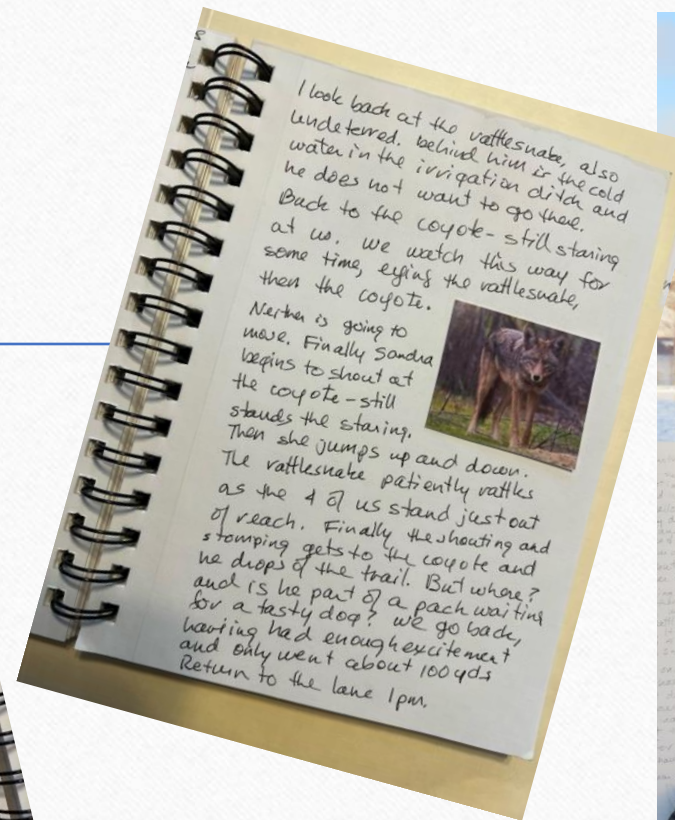 I look back at the rattlesnake, also
undeterred. Behind him is the cold
water in the irrigation ditch and
he does not want to go there.
Back to the coyote - still staring
at us. We watch this way for
some time, eyeing the rattlesnake,
then the coyote.
Neither is going to
move. Finally Sandra
begins to shout at
the coyote - still
stands the staring.
Then she jumps up and down.
The rattlesnake patiently rattles
as the 4 of us stand just out
of reach. Finally the shouting and
stomping gets to the coyote and
he drops of the trail. But where?
and is he part of a pack waiting
for a tasty dog? We go back,
having had enough excitement
and only went about 100 yds
Return to the lane 1pm.